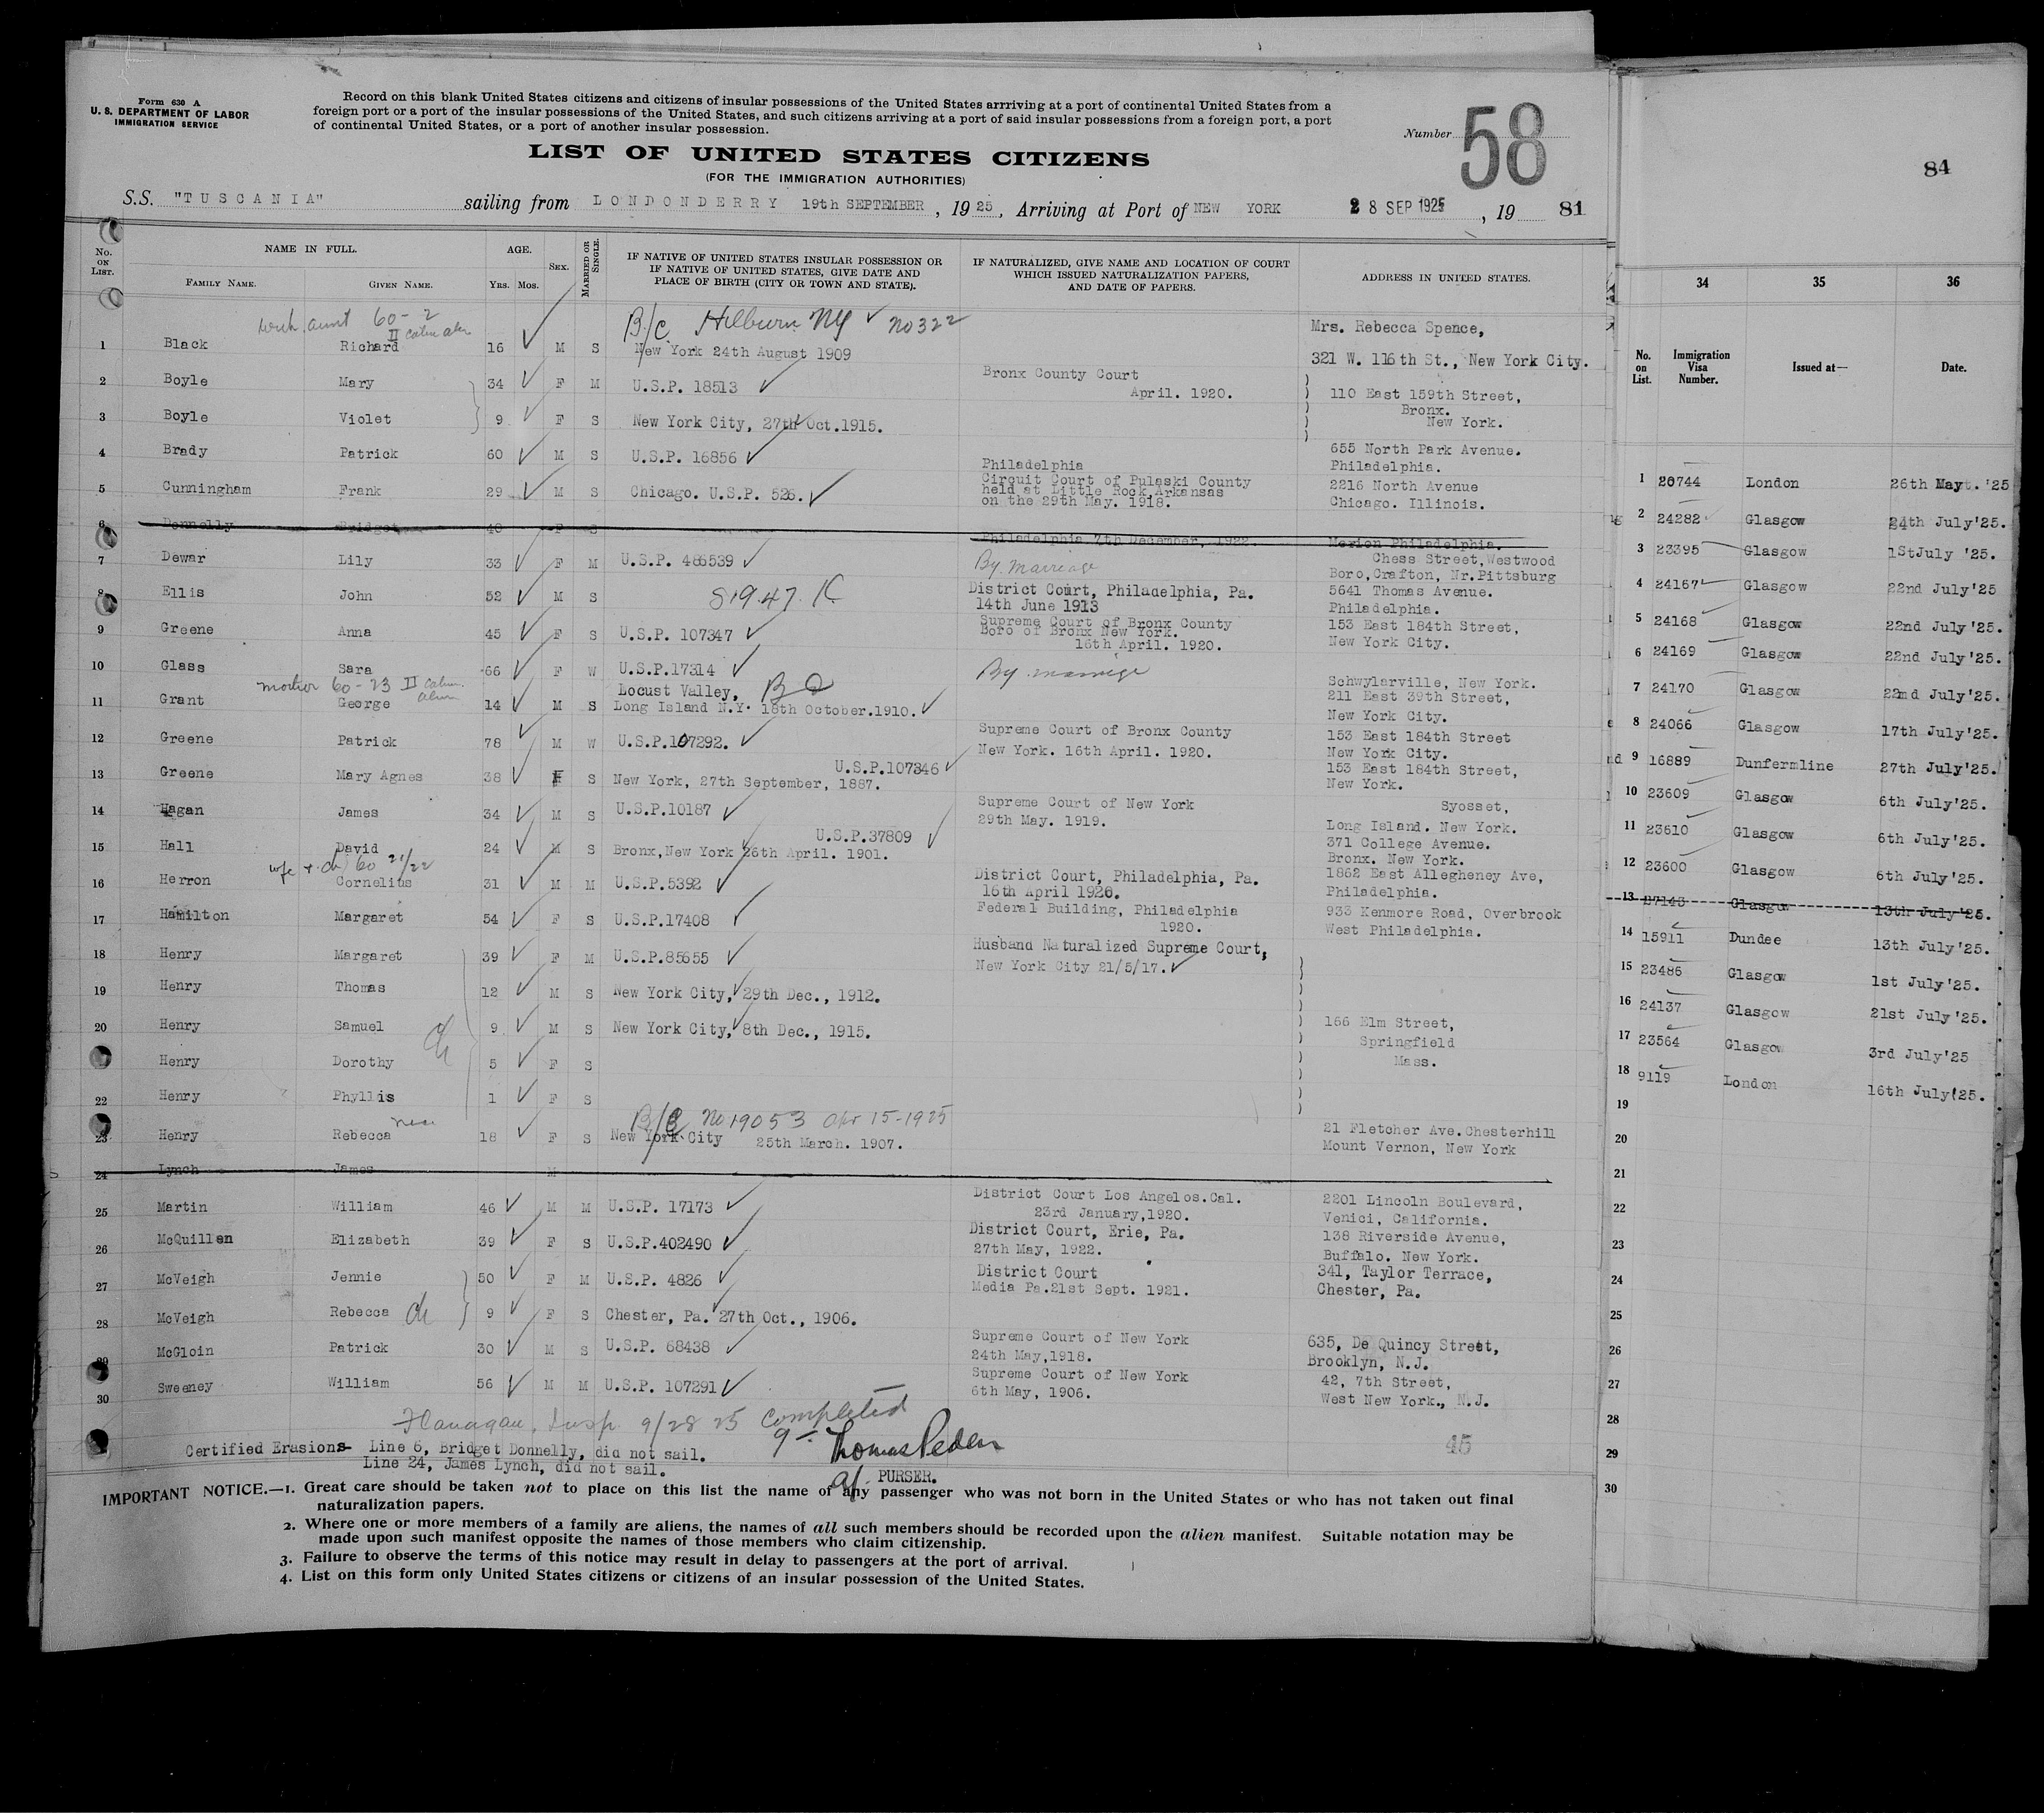 Form 630 A
U. S. DEPARTMENT OF LABOR
IMMIGRATION SERVICE
Record on this blank United States citizens and citizens of insular possessions of the United States arrriving at a port of continental United States from a
foreign port or a port of the insular possessions of the United States, and such citizens arriving at a port of said insular possessions from a foreign port, a port
of continental United States, or a port of another insular possession.
Number 58
LIST OF UNITED STATES CITIZENS
(FOR THE IMMIGRATION AUTHORITIES)
S.S. "TUSCANIA" sailing from LONDONDERRY 19th SEPTEMBER, 1925, Arriving at Port of NEW YORK 28 SEP 1925, 19 81
No. ON LIST. NAME IN FULL. FAMILY NAME. GIVEN NAME. AGE. Yrs. Mos. SEX. MARRIED OR SINGLE. IF NATIVE OF UNITED STATES INSULAR POSSESSION OR IF NATIVE OF UNITED STATES, GIVE DATE AND PLACE OF BIRTH (CITY OR TOWN AND STATE). IF NATURALIZED, GIVE NAME AND LOCATION OF COURT WHICH ISSUED NATURALIZATION PAPERS, AND DATE OF PAPERS. ADDRESS IN UNITED STATES.
with aunt 60-2 II B/C Hilburn NY ✓ No 322 Mrs. Rebecca Spence,
1 Black Richard 16 M S New York 24th August 1909 321 W. 116th St., New York City.
2 Boyle Mary 34 F M U.S.P. 18513 Bronx County Court April. 1920. 110 East 159th Street,
Bronx.
3 Boyle Violet 9 F S New York City, 27th Oct.1915. New York.
4 Brady Patrick 60 M S U.S.P. 16856 Philadelphia 655 North Park Avenue.
Philadelphia.
5 Cunningham Frank 29 M S Chicago. U.S.P. 526. Circuit Court of Pulaski County 2216 North Avenue
held at Little Rock, Arkansas
on the 29th May. 1918. Chicago. Illinois.
6 Donnelly Bridget 40 F S Philadelphia 7th December, 1922. Merion Philadelphia.
7 Dewar Lily 33 F M U.S.P. 486539 By marriage Chess Street, Westwood
Boro, Crafton, Nr. Pittsburg
8 Ellis John 52 M S District Court, Philadelphia, Pa. 5641 Thomas Avenue.
14th June 1913 Philadelphia.
9 Greene Anna 45 F S U.S.P. 107347 Supreme Court of Bronx County 153 East 184th Street,
Boro of Bronx New York.
16th April. 1920. New York City.
10 Glass Sara 66 F W U.S.P.17314 By marriage Schwylarville, New York.
mother 60-23 II
11 Grant George 14 M S Locust Valley, 211 East 39th Street,
Long Island N.Y. 18th October.1910. New York City.
12 Greene Patrick 78 M W U.S.P.107292. Supreme Court of Bronx County 153 East 184th Street
New York. 16th April. 1920. New York City.
U.S.P.107346
13 Greene Mary Agnes 38 F S New York, 27th September, 1887. 153 East 184th Street,
New York.
14 Hagan James 34 M S U.S.P.10187 Supreme Court of New York Syosset,
29th May. 1919. Long Island. New York.
U.S.P.37809
15 Hall David 24 M S Bronx, New York 26th April. 1901. 371 College Avenue.
Bronx. New York.
wife + ch) 60 21/22
16 Herron Cornelius 31 M M U.S.P.5392 District Court, Philadelphia, Pa. 1862 East Allegheney Ave,
16th April 1920. Philadelphia.
17 Hamilton Margaret 54 F S U.S.P.17408 Federal Building, Philadelphia 933 Kenmore Road, Overbrook
1920. West Philadelphia.
18 Henry Margaret 39 F M U.S.P.85655 Husband Naturalized Supreme Court,
New York City 21/5/17.
19 Henry Thomas 12 M S New York City, 29th Dec., 1912.
20 Henry Samuel ch 9 M S New York City, 8th Dec., 1915. 166 Elm Street,
Springfield
Henry Dorothy 5 F S Mass.
22 Henry Phyllis 1 F S
B/C No 19053 Apr 15-1925
23 Henry Rebecca niece 18 F S New York City 25th March. 1907. 21 Fletcher Ave. Chesterhill
Mount Vernon, New York
24 Lynch James M
25 Martin William 46 M M U.S.P. 17173 District Court Los Angelos.Cal. 2201 Lincoln Boulevard,
23rd January,1920. Venici, California.
26 McQuillen Elizabeth 39 F S U.S.P.402490 District Court, Erie, Pa. 138 Riverside Avenue,
27th May, 1922. Buffalo. New York.
27 McVeigh Jennie 50 F M U.S.P. 4826 District Court 341, Taylor Terrace,
Media Pa.21st Sept. 1921. Chester, Pa.
28 McVeigh Rebecca ch 9 F S Chester, Pa. 27th Oct., 1906.
29 McGloin Patrick 30 M S U.S.P. 68438 Supreme Court of New York 635, De Quincy Street,
24th May,1918. Brooklyn, N.J.
30 Sweeney William 56 M M U.S.P. 107291 Supreme Court of New York 42, 7th Street,
6th May, 1906. West New York., N.J.
Flanagan, Insp. 9/28 25 Completed
Certified Erasions- Line 6, Bridget Donnelly, did not sail. Thomas Peden
Line 24, James Lynch, did not sail. PURSER.
45
IMPORTANT NOTICE.—1. Great care should be taken not to place on this list the name of any passenger who was not born in the United States or who has not taken out final
naturalization papers.
2. Where one or more members of a family are aliens, the names of all such members should be recorded upon the alien manifest. Suitable notation may be
made upon such manifest opposite the names of those members who claim citizenship.
3. Failure to observe the terms of this notice may result in delay to passengers at the port of arrival.
4. List on this form only United States citizens or citizens of an insular possession of the United States.
84
34 35 36
No. on List. Immigration Visa Number. Issued at— Date.
1 20744 London 26th May. '25
2 24282 Glasgow 24th July'25.
3 23395 Glasgow 1StJuly '25.
4 24167 Glasgow 22nd July'25
5 24168 Glasgow 22nd July'25.
6 24169 Glasgow 22nd July'25.
7 24170 Glasgow 22nd July'25.
8 24066 Glasgow 17th July'25.
9 16889 Dunfermline 27th July'25.
10 23609 Glasgow 6th July'25.
11 23610 Glasgow 6th July'25.
12 23600 Glasgow 6th July'25.
13 27143 Glasgow 13th July'25.
14 15911 Dundee 13th July'25.
15 23486 Glasgow 1st July'25.
16 24137 Glasgow 21st July'25.
17 23564 Glasgow 3rd July'25
18 9119 London 16th July'25.
19
20
21
22
23
24
25
26
27
28
29
30